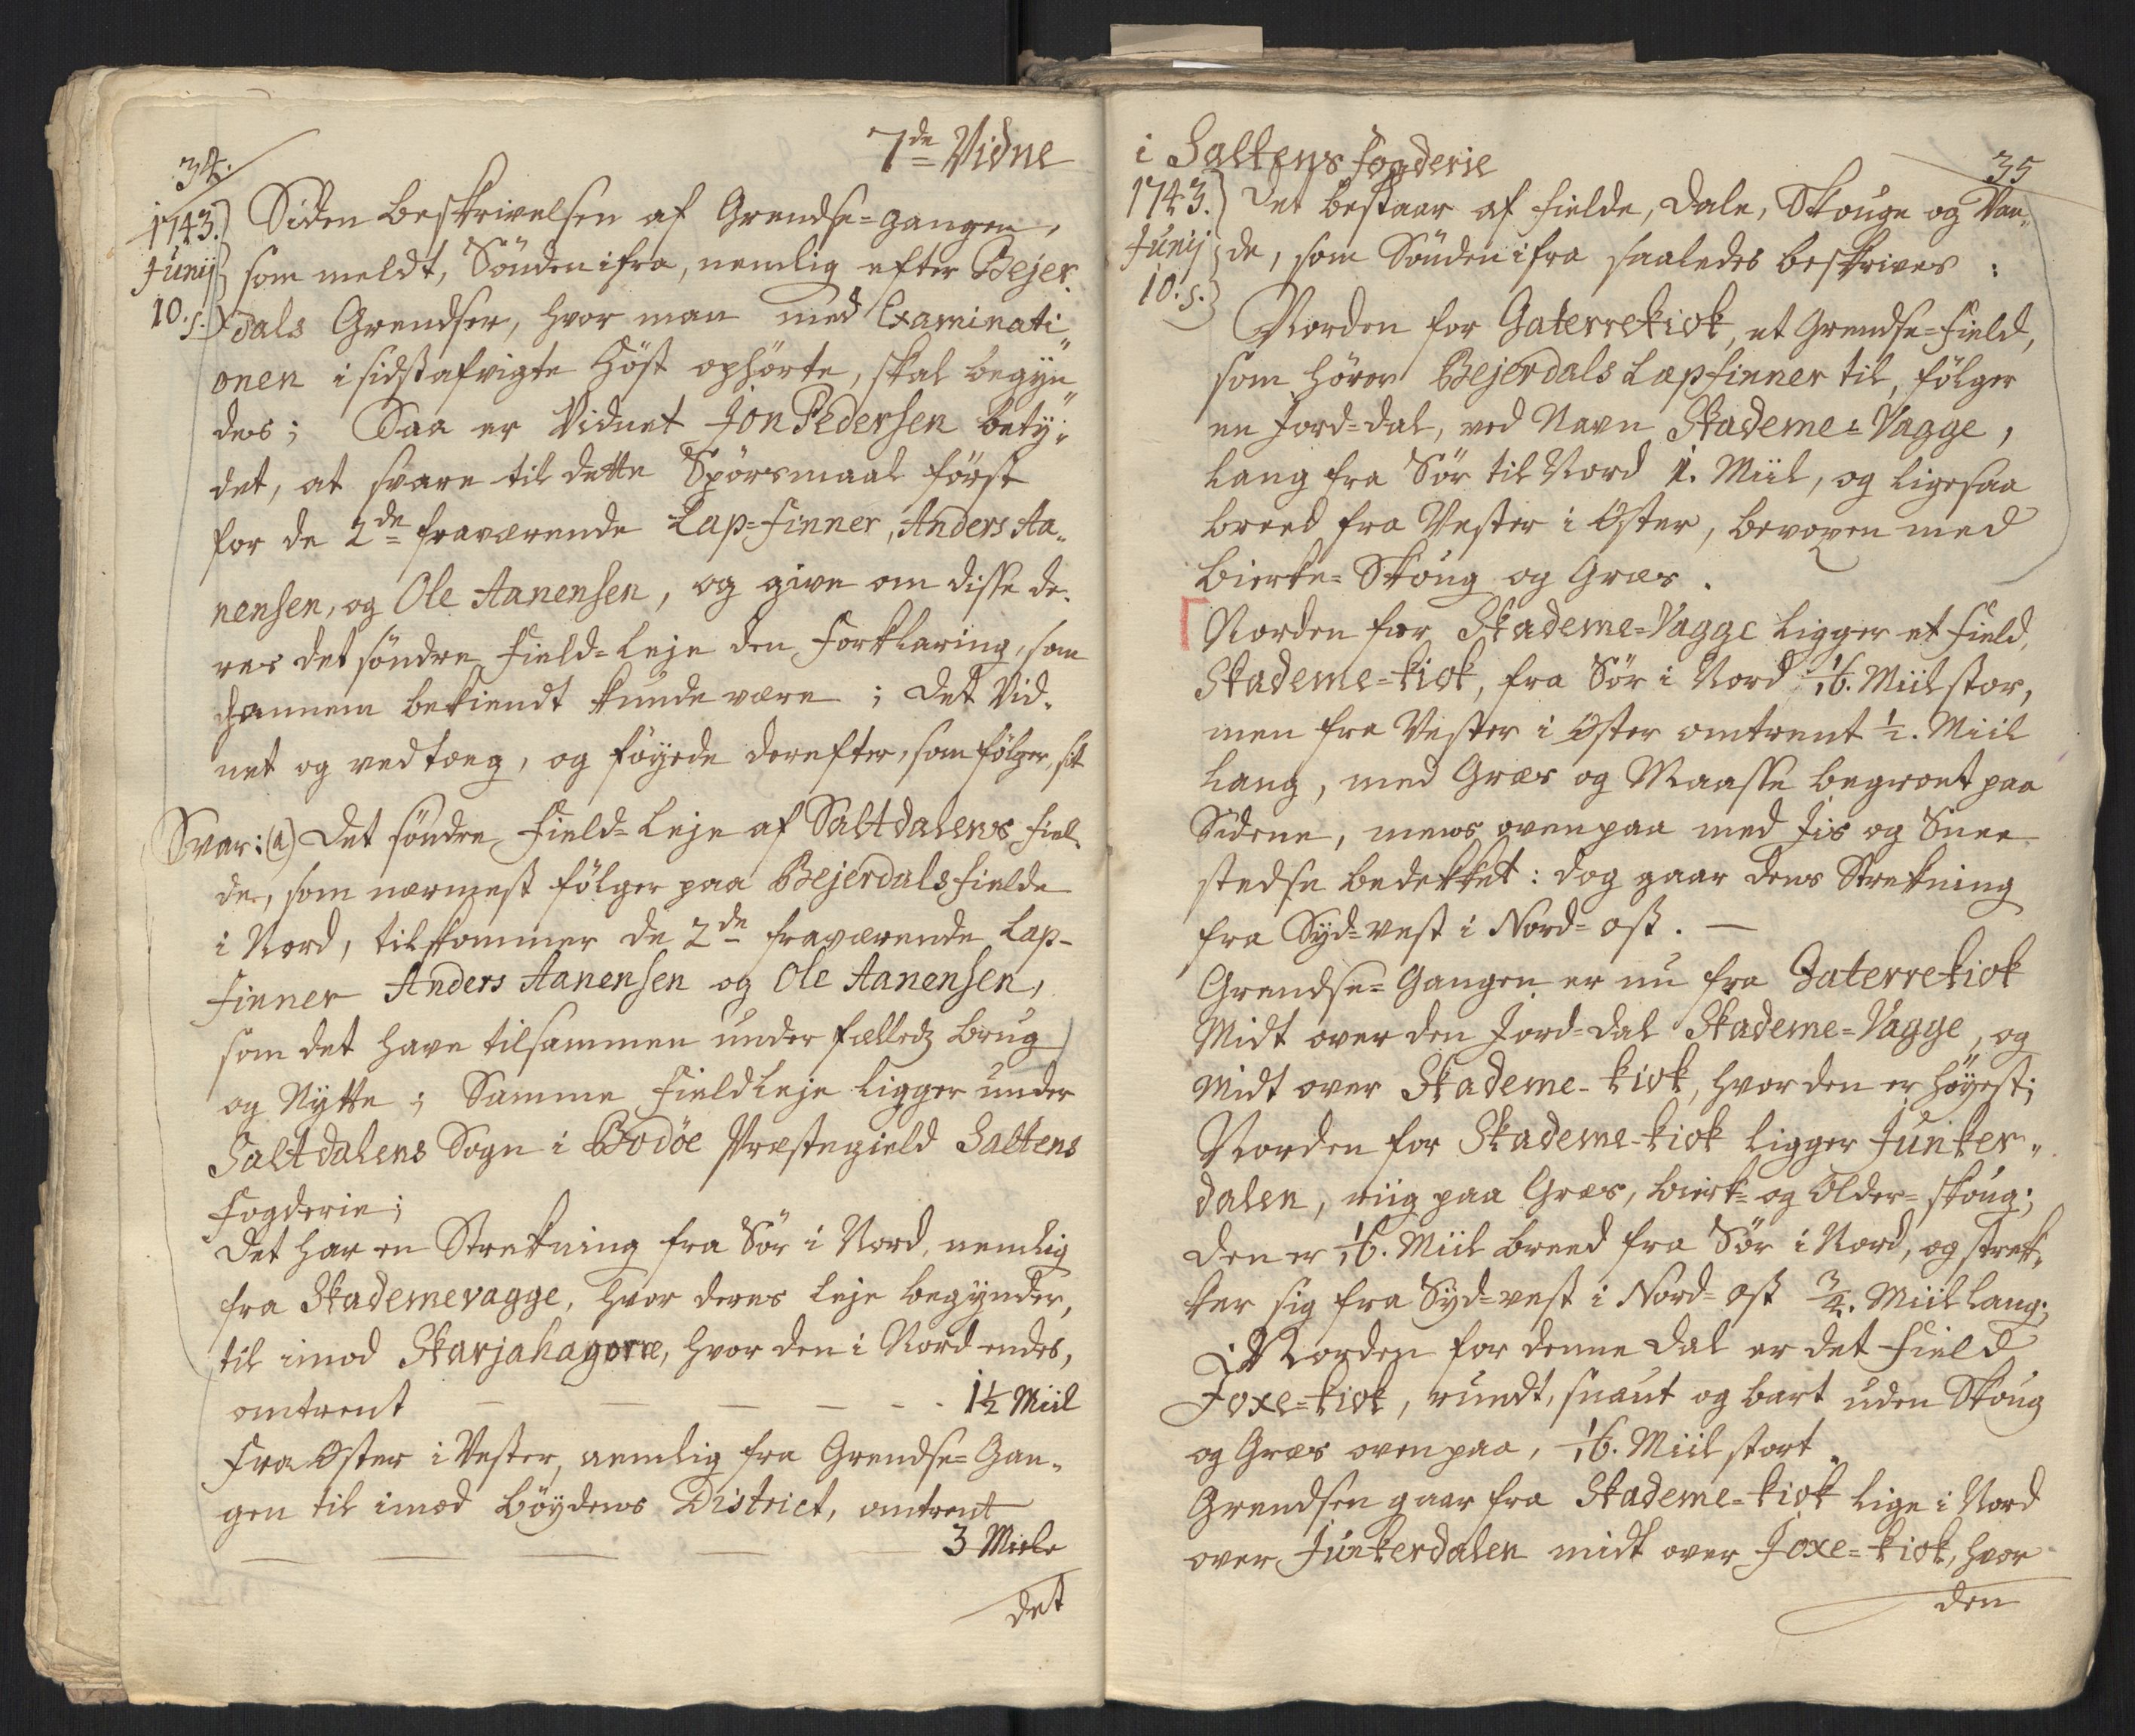 34.
7de Vidne
1743. Siden beskrivelsen af Grendse=gangen,
Junij som meldt, Sönden ifra, nemlig efter Bejer-
10. s. dals Grendser, hvor man med Examinati„
onen i sidstafvigte Höst ophörte, skal begyn„
des; Saa er Vidnet Jon Pedersen bety„
det, at svare til dette Spörsmaal först
for de 2de fraværende Lap=Finner, Anders Aa„
nensen, og Ole Aanensen, og give om disse de-
res det söndre Field=Leje den Forklaring, som
hannem bekiendt kunde være; Det Vid-
net og vedtoeg, og föyede derefter, som fölger, sit
Svar: (a) Det söndre Field=Leje af Saltdalens Fiel-
de, som nærmest fölger paa Bejerdals Fielde
i Nord, tilkommer de 2de fraværende Lap-
Finner Anders Aanensen og Ole Aanensen,
som det have tilsammen under fælledz Brug
og Nytte; Samme Fieldleje ligger under
Saltdalens Sogn i Bodöe Præstegield Saltens
Fogderie;
Det har en Strekning fra Sör i Nord, nemlig
fra Skademevagge, hvor deres Leje begynder,
til imod Skarjahagorre, hvor den i Nord endes,
omtrent — — — — - - 1½ Miil
Fra Öster i Vester, nemlig fra Grendse=Gan-
gen til imod Böydens District, omtrent
— — — — — 3 Miile
det
i Saltens Fogderie
35
1743. Det bestaar af Fielde, Dale, Skouge og Van„
Junij de, som Sönden ifra saaledes beskrives:
10. s.
Norden for Gaterrekiok, et Grendse=Field,
som hörer Bejerdals Lapfinner til, fölger
en Jord=dal, ved Navn Skademe=Vagge,
lang fra Sör til Nord 1. Miil, og ligesaa
breed fra Vester i Öster, bevoxen med
Bierke=Skoug og Græs.
Norden for Skademe=Vagge ligger et Field,
Skademe=kiok, fra Sör i Nord 1/6. Miil stor,
men fra Vester i Öster omtrent ½. Miil
lang, med Græs og Maasse begroet paa
Sidene, mens ovenpaa med Jis og Snee
stedse bedekket: dog gaar dens Strekning
fra Syd=vest i Nord=ost. —
Grendse=Gangen er nu fra Gaterrekiok
Midt over den Jord=dal Skademe=Vagge, og
Midt over Skademe-kiok, hvor den er höyest;
Norden for Skademe-kiok ligger Junker„
dalen, riig paa Græs, Birk= og Older=skoug;
den er 1/6. Miil breed fra Sör i Nord, og strek„
ker sig fra Syd=vest i Nord=ost ¾. Miil lang;
Norden for denne Dal er det Field
Joxe=kiok, rundt, snaut og bart uden Skoug
og Græs ovenpaa, 1/6. Miil stort.
Grendsen gaar fra Skademe=kiok lige i Nord
over Junkerdalen midt over Joxe=kiok, hvor
den